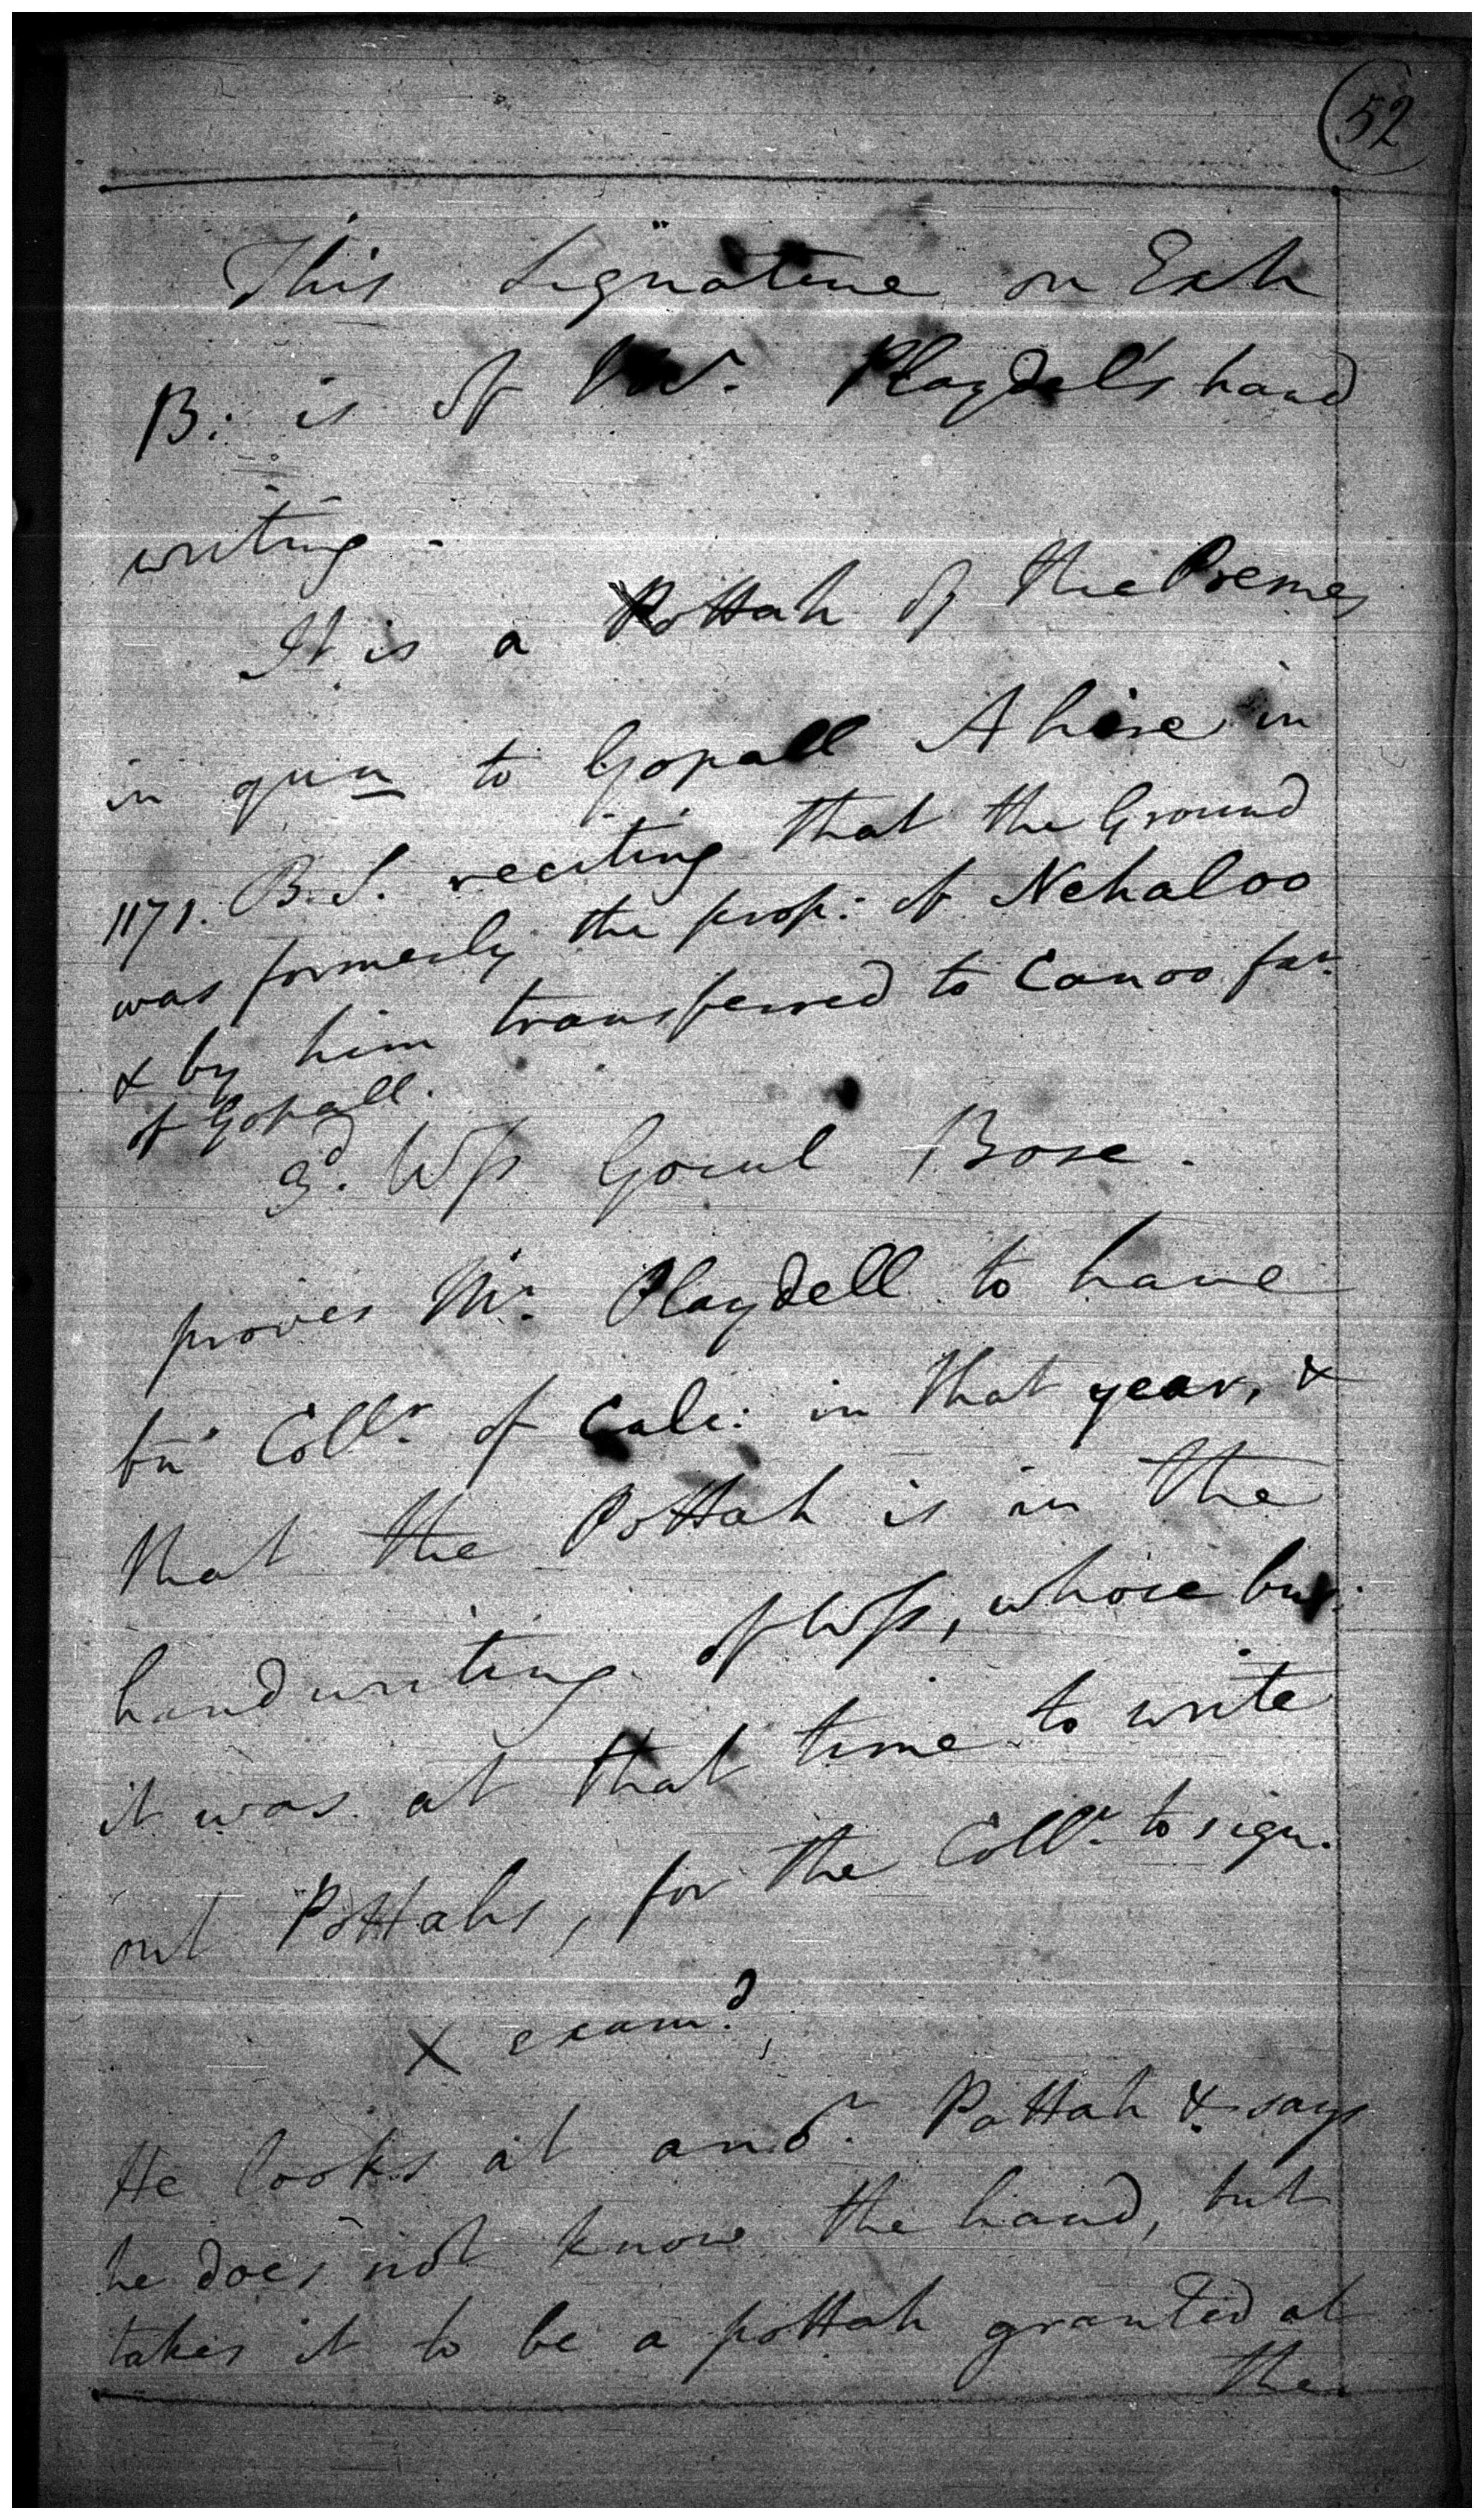 52
This Signature on Exh
B: is of Mr. Playdel's hand
writing.
It is a Pottah of the Premes
in qun to Gopall Ahire in
1171. B.S. reciting that the Ground
was formerly the prop: of Nehaloo
& by him transferred to Canoo far.
of Gopall.
3d. Wss Gocul Bose.
proves Mr. Playdell to have
bn Collr. of Calc: in that year, &
that the Pottah is in the
handwriting of Wss, whose bus:
it was at that time to write
out Pottahs, for the Collr. to sign.
X examd,
He looks at anor. Pottah & says
he does not know the hand, but
takes it to be a pottah granted at
the